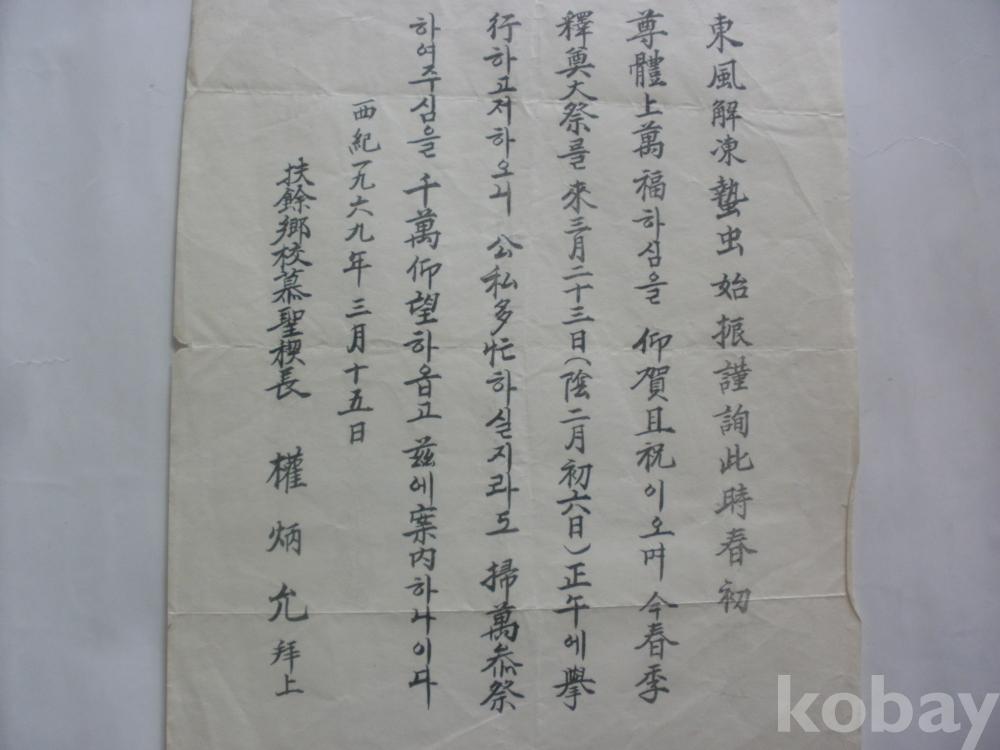 東風解凍蟄虫始振謹詢此時春初
尊體上萬福하심을 仰賀且祝이오며 今春季
釋奠大祭를 來三月二十三日(陰二月初六日)正午에 擧
行하고저하오니 公私多忙하실지라도 掃萬叅祭
하여주심을 千萬仰望하옵고 玆에案內하나이다
西紀一九六九年 三月十五日
扶餘鄕校慕聖稧長 權炳允 拜上
kobay